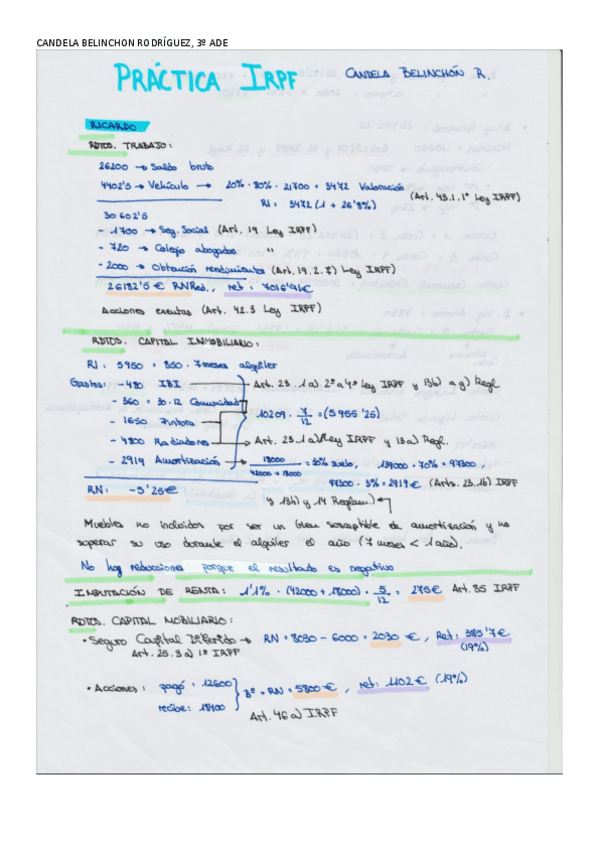 CANDELA BELINCHON RODRÍGUEZ, 3º ADE
PRÁCTICA IRPF CANDELA BELINCHÓN R.
RICARDO
RDTOS. TRABAJO:
26200 → Saldo bruto
4402'5 → Vehículo → 20% · 80% · 21700 = 3472 Valoración (Art. 43.1.1º Ley IRPF)
RI: 3472 (1 + 26'8%)
30602'5
- 1700 → Seg. Social (Art. 19 Ley IRPF)
- 720 → Colegio abogados "
- 2000 → Obtención rendimientos (Art. 19.2.f) Ley IRPF)
26182'5 € RNRed., ret: 7016'91€
Acciones exentas (Art. 42.3 Ley IRPF)
RDTOS. CAPITAL INMOBILIARIO:
RI: 5950 = 850 · 7 meses alquiler
Gastos: - 480 IBI Art. 23.1 a) 2º a 4º Ley IRPF y 13b) a g) Regl
- 360 = 30 · 12 Comunidad
- 1650 Pintura 10209 · 7/12 = (5955'25)
- 4800 Radiadores → Art. 23.1 a) Ley IRPF y 13 a) Regl.
- 2919 Amortización → 18000 / 42000 + 18000 = 30% suelo, 139000 · 70% = 97300,
97300 · 3% = 2919 € (Arts. 23.1b) IRPF
RN: -5'25€ y 13h) y 14 Reglam.)
Muebles no incluidos por ser un bien susceptible de amortización y no
superar su uso durante el alquiler el año (7 meses < 1 año).
No hay reducciones porque el resultado es negativo
IMPUTACIÓN DE RENTA: 1'1% · (42000 + 18000) · 5/12 = 275€ Art. 85 IRPF
RDTOS. CAPITAL MOBILIARIO:
• Seguro Capital Diferido → RN = 8030 - 6000 = 2030 €, Ret: 385'7€ (19%)
Art. 25.3 a) 1º IRPF
• Acciones: pagó: 12600
recibe: 18400 Bº = RN = 5800€, ret: 1102€ (19%)
Art. 46 a) IRPF